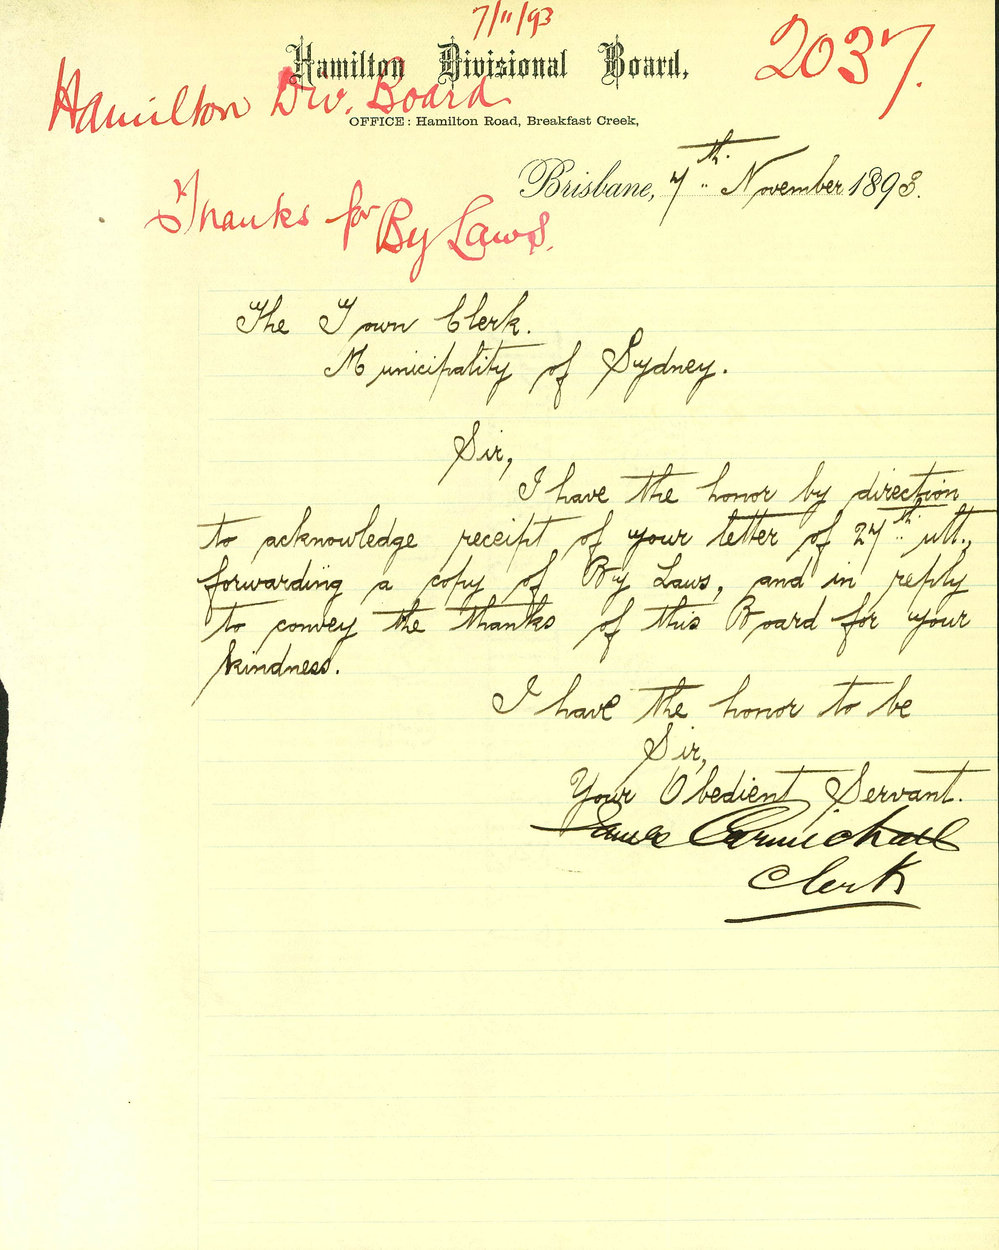 7/11/93
2037.
Hamilton Divisional Board,
Hamilton Div. Board
OFFICE: Hamilton Road, Breakfast Creek,
Brisbane, 7th November 1893.
Thanks for By Laws.
The Town Clerk.
Municipality of Sydney.
Sir,
I have the honor by direction
to acknowledge receipt of your letter of 27th ult.,
forwarding a copy of By Laws, and in reply
to convey the thanks of this Board for your
kindness.
I have the honor to be
Sir,
Your Obedient Servant.
James Carmichael
Clerk